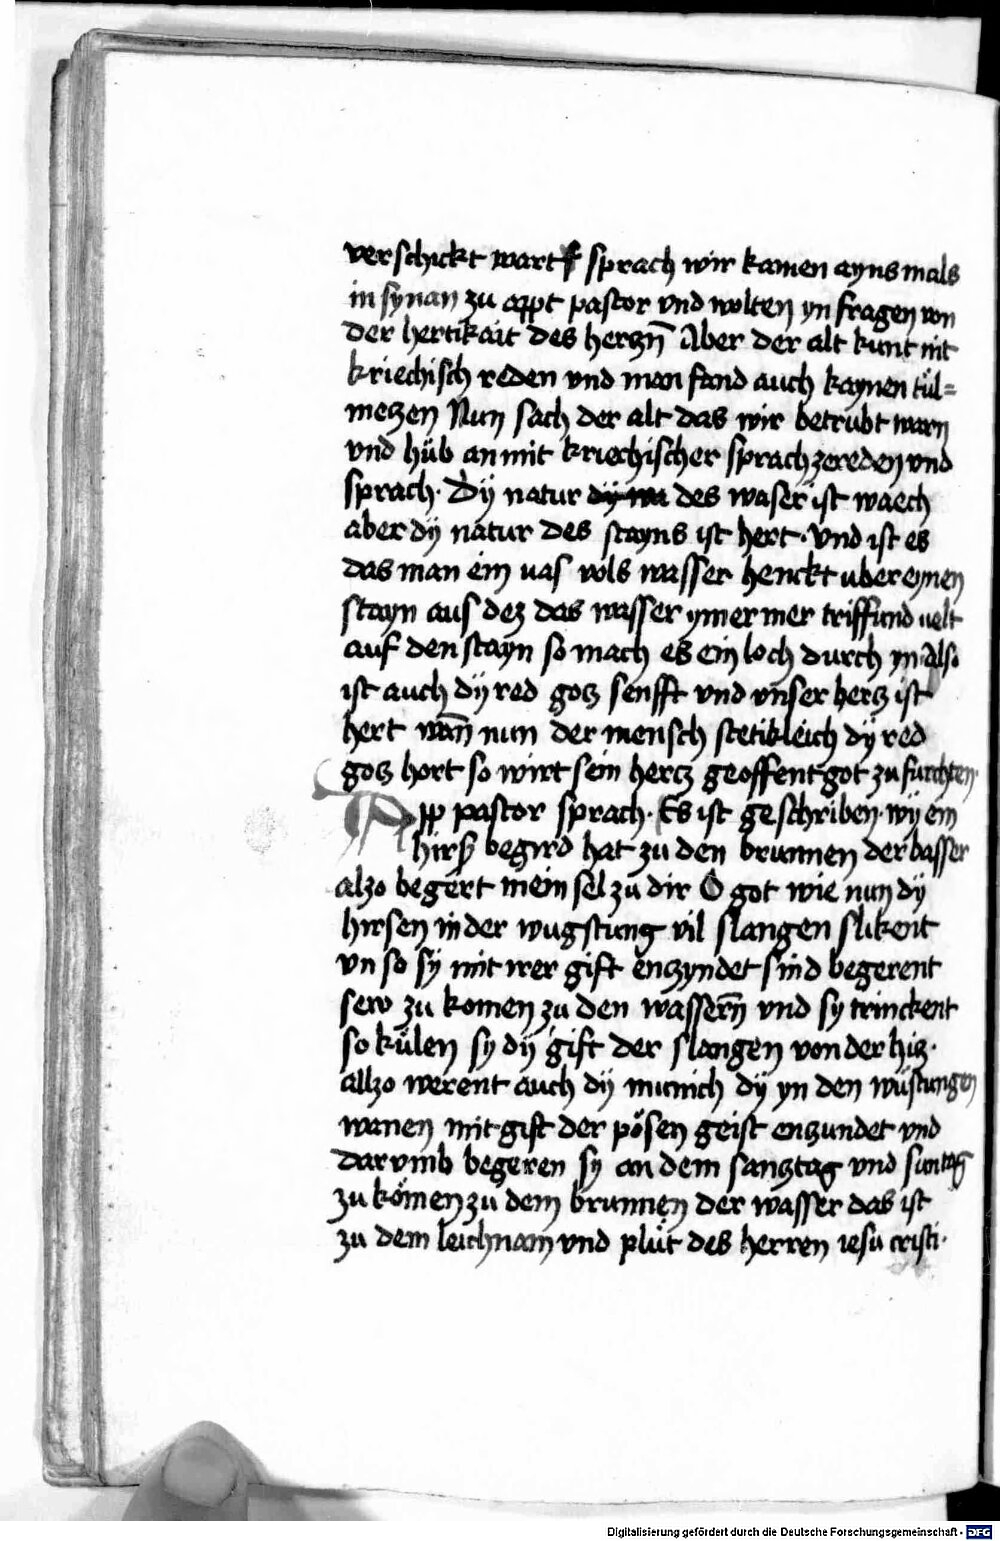 verschickt wart sprach wir kamen ayns mals
in synan zu appt pastor vnd wolten yn fragen von
der hertikait des herczn̄ Aber der alt kunt nit
kriechisch reden vnd man fand auch kaynen túl=
meczen Nun sach der alt das wir betrubt warn
vnd hůb an mit kriechischer sprach zereden vnd
sprach. Dÿ natur dÿ wa des waser ist waech
aber dÿ natur des stayns ist hert. Vnd ist es
das man ein vas vols wasser henckt uber eynen
stayn aus dez das wasser ymer mer triff und velt
auf den stayn so mach es ein loch durch yn Also
ist auch dÿ red gocz senfft vnd vnser hercz ist
hert wan̄ nun der mensch stetikleich dÿ red
gocz hort so wirt sein hercz geoffent got zu furchten.
App pastor sprach. Es ist geschriben. wÿ ein
hirsz begird hat zu den brunnen der basser
alzo begert mein sel zu dir O got wie nun dÿ
hirsen in der wugstung vil slangen slikent
vn so sÿ mit irer gift enczyndet sind begerent
sew zu komen zu den wassern̄ vnd sy trinckent
so kůlen sy dÿ gift der slangen von der hicz.
allzo werent auch dÿ munich dÿ yn den wústungen
wanen mit gift der pósen geist enczundet vnd
darvmb begeren sy an dem sancztag vnd suntag
zu kómen zu dem brunnen der wasser das ist
zu dem leichnam vnd plůt des herren iesu cristi.
Digitalisierung gefördert durch die Deutsche Forschungsgemeinschaft - DFG